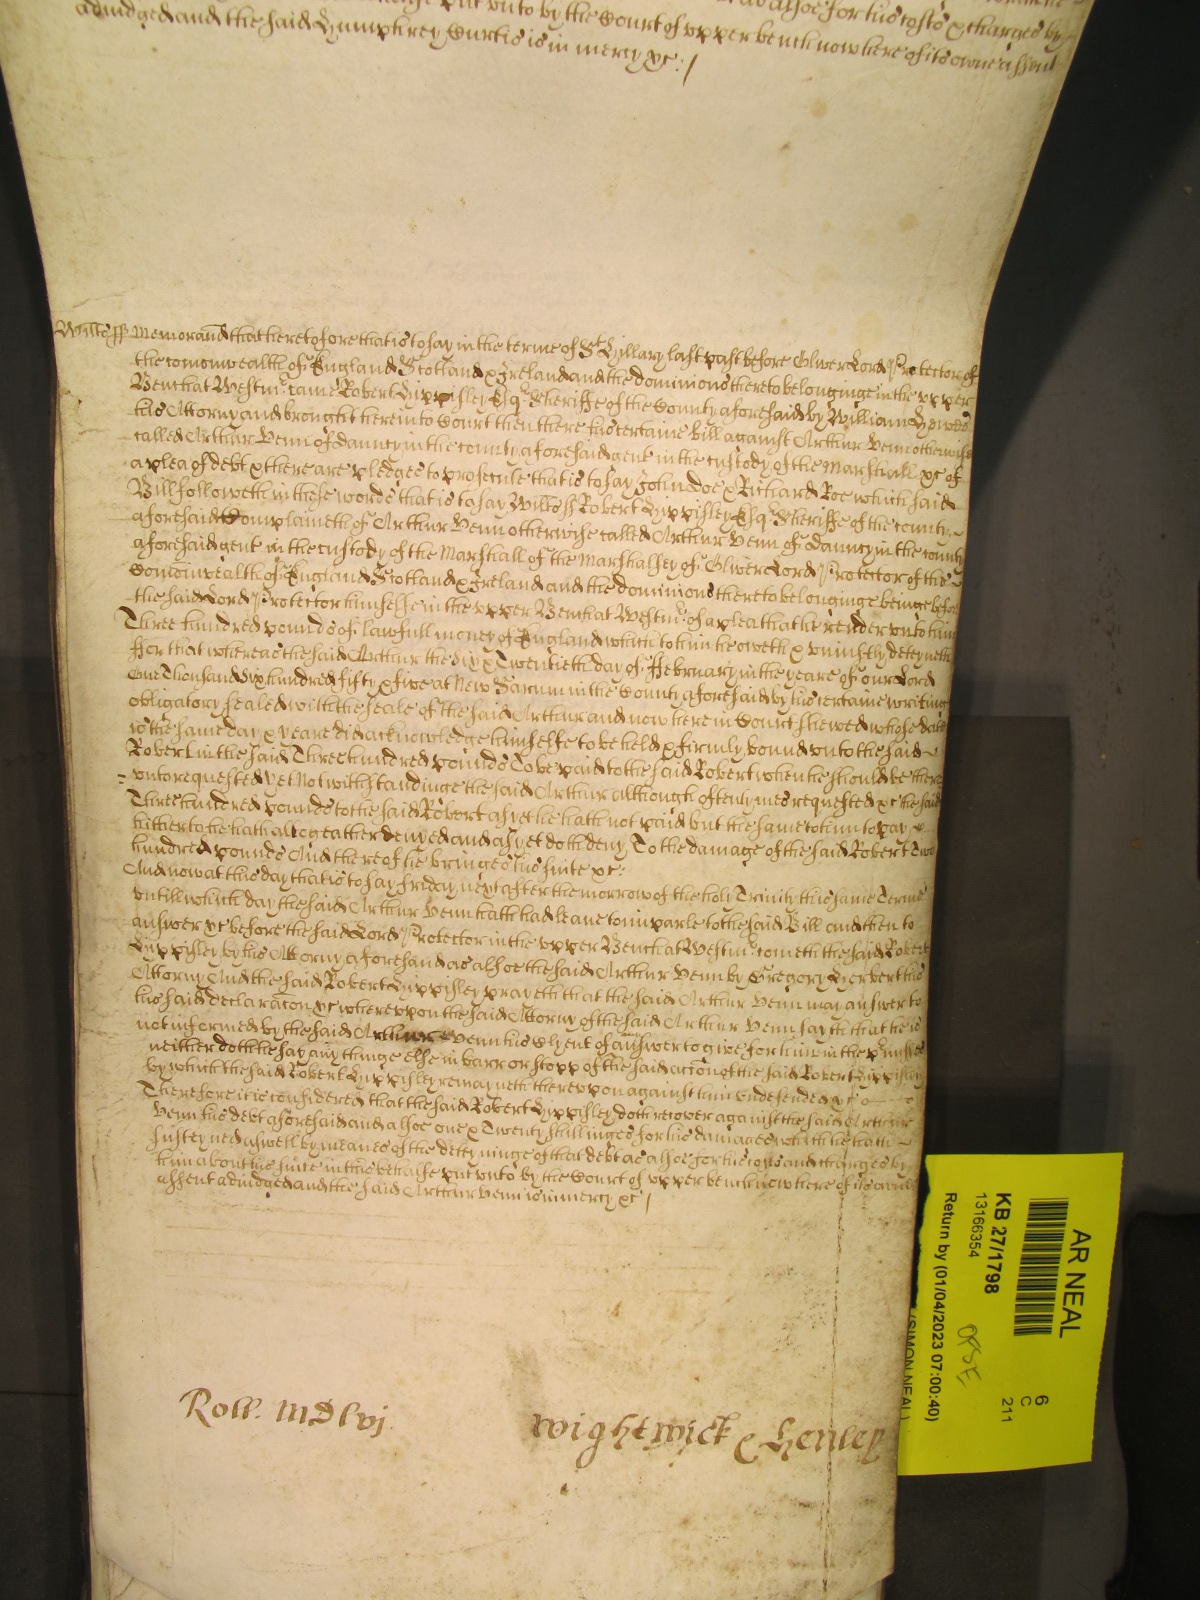 put unto by the Court of upper bench now here of its owne assent
adiudged and the said Humphrey Curtis is in mercy &c: /
Wiltss ss Memorand that heretofore that is to say in the terme of St Hillary last past before Oliver Lord Protector of
the Comonwealth of England Scotland & Ireland and the dominions thereto belonginge in the upper
Bench at Westmr came Robert Hippisley Esqr Sheriffe of the County aforesaid by William
his Attorny and brought here into Court then there his certaine Bill against Arthur Venn otherwise
called Arthur Venn of dauncy in the county aforesaid gent in the custody of the Marshall &c of
a plea of debt & there are pledges to prosecute that is to say John doe & Richard Roe which said
Bill followeth in these words that is to say Wiltss ss Robert Hippisley Esqr Sheriffe of the county
aforesaid Complaineth of Arthur Venn otherwise called Arthur Venn of dauncy in the county
aforesaid gent in the custody of the Marshall of the Marshalsey of Oliver Lord Protector of the
Comonwealth of England Scotland & Ireland and the dominions thereto belonginge beinge before
the said Lord Protector himselfe in the upper Bench at Westmr of a plea that he render unto him
Three hundred pounds of lawfull money of England which to him he oweth & uniustly deteyneth
Ffor that whereas the said Arthur the six & Twentieth day of Ffebruary in the yeare of our Lord
One Thousand six hundred fifty & five at New Sarum in the County aforesaid by his certaine writing
obligatory sealed with the seale of the said Arthur and now here in Court shewed whose date
is the same day & yeare did acknowledge himselfe to be held & firmly bound unto the said
Robert in the said Three hundred pounds To be paid to the said Robert when he should be there
unto requested yet Notwithstandinge the said Arthur although oftentymes requested &c the said
Three hundred pounds to the said Robert as yet he hath not paid but the same to him to pay
hitherto he hath altogeather denyed and as yet doth deny To the damage of the said Robert Two
hundred pounds And thereof he bringes his suite &c:
And now at this day that is to say Friday next after the morrow of the holy Trinity this same Terme
untill which day the said Arthur Venn hath had leave to imparle to the said Bill and then to
answer &c before the said Lord Protector in the upper Bench at Westmr cometh the said Robert
Hippisley by his Attorny aforesaid as alsoe the said Arthur Venn by Gregory Herbert his
Attorny And the said Robert Hippisley prayeth that the said Arthur Venn may answer to
his said declaracon &c whereupon the said Attorny of the said Arthur Venn sayth that he is
not informed by the said Arthur Venn his Clyent of answer to give for him in the p'misses
neither doth he say any thinge else in barr or stopp of the said accon of the said Robert Hippisley
by which the said Robert Hippisley remayneth thereupon against him undefended &c
Therefore it is considered that the said Robert Hippisley doth recover against the said Arthur
Venn his debt aforesaid and alsoe one & Twenty shillinges for his damages which he hath
susteyned aswell by meanes of the deteyninge of that debt as alsoe for his costs and charges by
him about his suite in this behalfe put unto by the Court of upper bench now here of its owne
assent adiudged and the said Arthur Venn is in mercy &c /
Roll. MDlvj
Wightwick & Henley
AR NEAL
KB 27/1798
13166354
Return by (01/04/2023 07:00:40)
(SIMON NEAL)
6
C
211